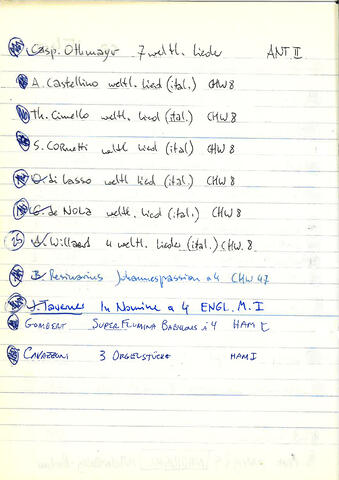 Casp. Othmayr 7 weltl. Lieder ANT. II
A. Castellino weltl. Lied (ital.) CHW 8
Th. Cimello weltl. Lied (ital.) CHW 8
S. Cornetti weltl. Lied (ital) CHW 8
O. di Lasso weltl. Lied (ital.) CHW 8
G. de Nola weltl. Lied (ital.) CHW 8
25 A. Willaert 4 weltl. Lieder (ital.) CHW. 8
B. Resinarius Johannespassion a 4 CHW 47
J. Taverner In Nomine a 4 ENGL. M. I
Gombert Super Flumina Babylonis à 4 HAM I
Cavazzoni 3 Orgelstücke HAM I